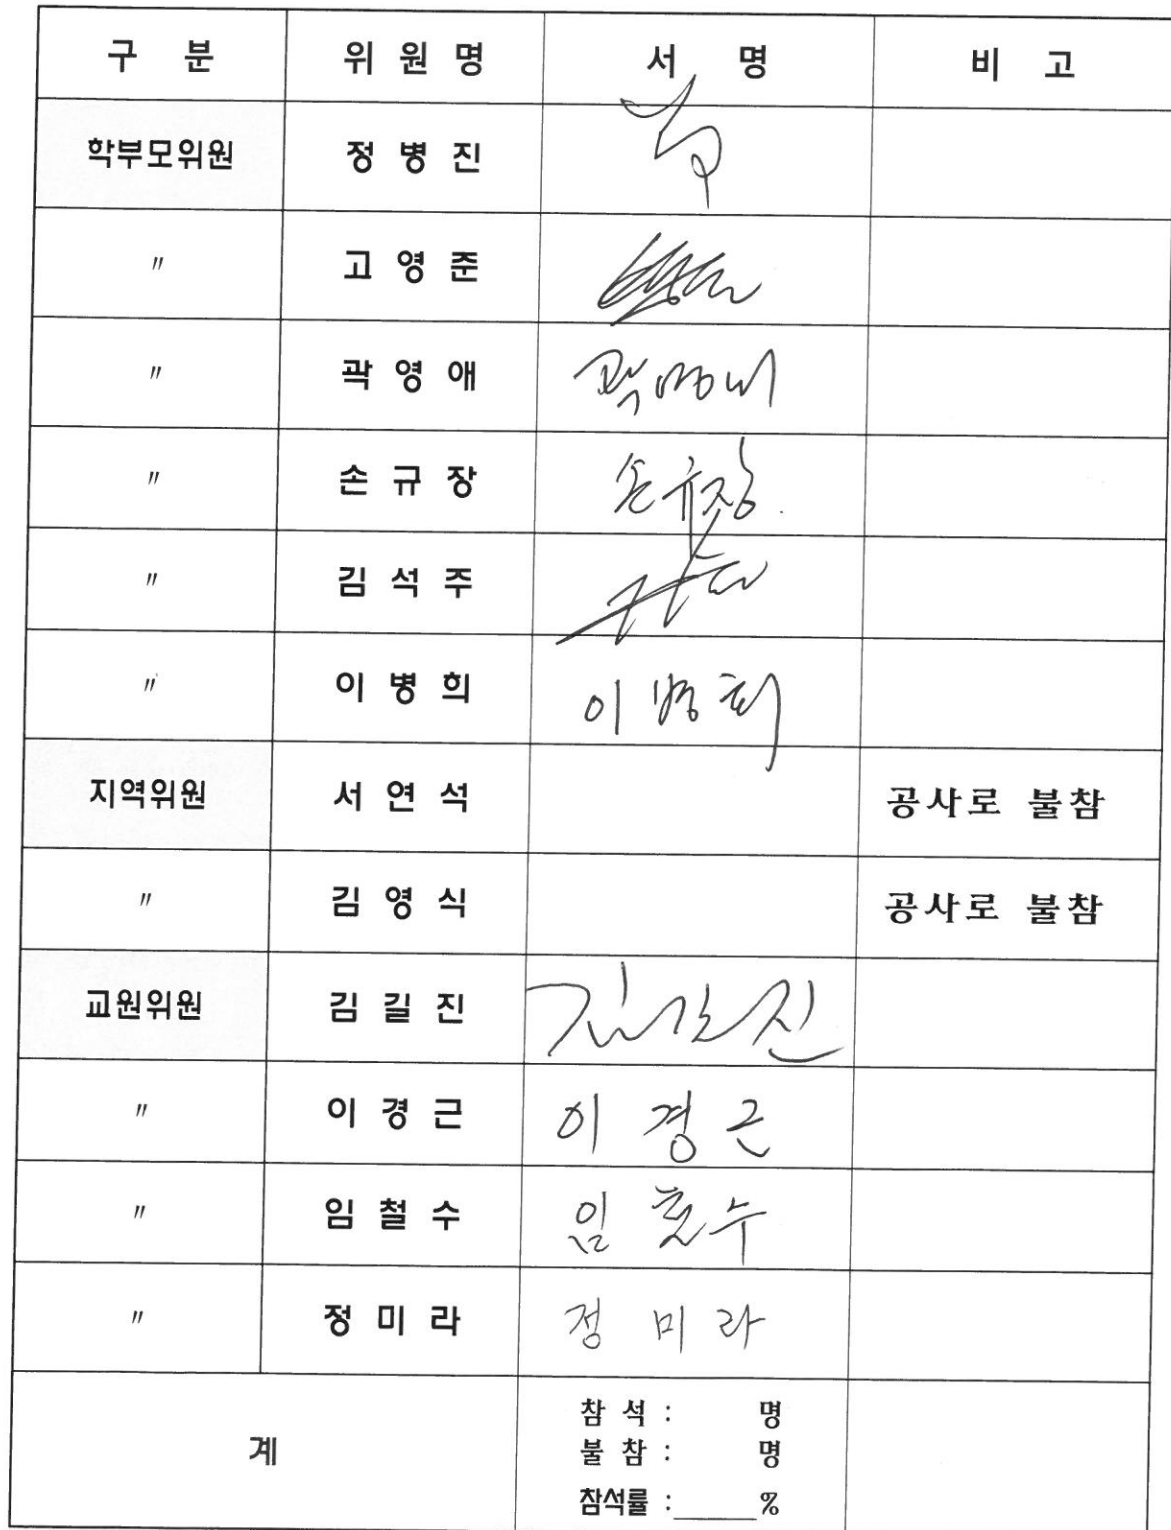 구 분 위 원 명 서 명 비 고
학부모위원 정 병 진
〃 고 영 준
〃 곽 영 애 곽영애
〃 손 규 장 손규장
〃 김 석 주
〃 이 병 희 이 병 희
지역위원 서 연 석 공사로 불참
〃 김 영 식 공사로 불참
교원위원 김 길 진 김길진
〃 이 경 근 이 경 근
〃 임 철 수 임 철 수
〃 정 미 라 정 미 라
계 참 석 : 명
불 참 : 명
참석률 : %